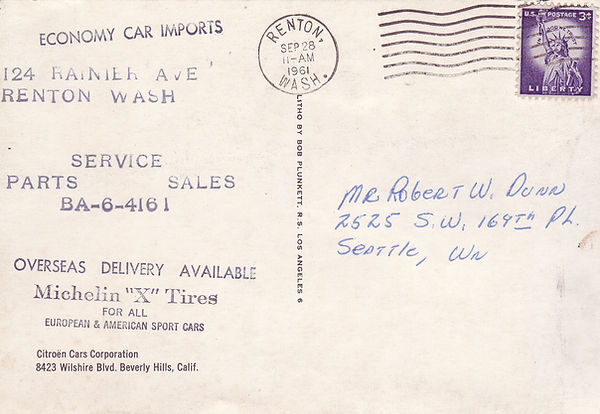 ECONOMY CAR IMPORTS
124 RAINIER AVE
RENTON WASH
SERVICE
PARTS SALES
BA-6-4161
OVERSEAS DELIVERY AVAILABLE
Michelin "X" Tires
FOR ALL
EUROPEAN & AMERICAN SPORT CARS
Citroën Cars Corporation
8423 Wilshire Blvd. Beverly Hills, Calif.
LITHO BY BOB PLUNKETT, R.S. LOS ANGELES 6
RENTON,
SEP 28
11-AM
1961
WASH.
U.S. POSTAGE 3¢
LIBERTY
MR ROBERT W. DUNN
2525 S.W. 164TH PL.
SEATTLE, WN